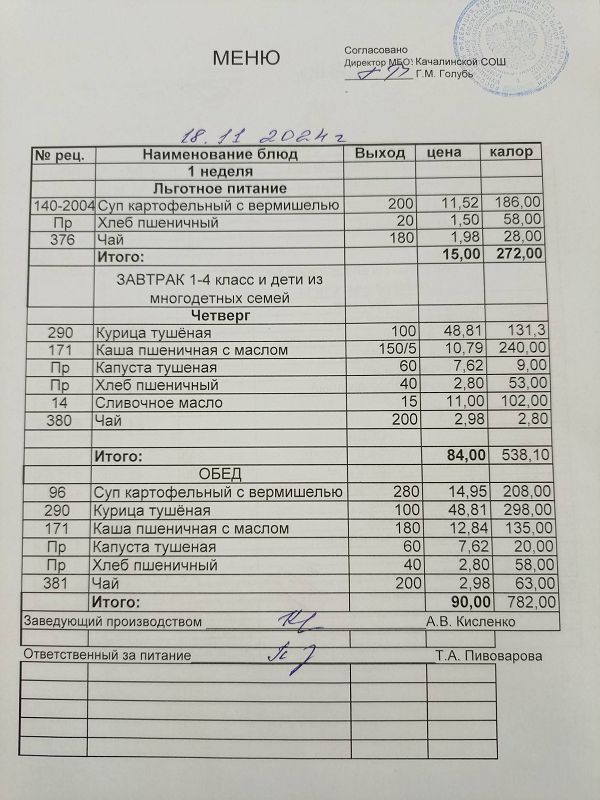 МЕНЮ
Согласовано
Директор МБО: Качалинской СОШ
Г.М. Голубь
18.11 2024г
№ рец. Наименование блюд Выход цена калор
1 неделя
Льготное питание
140-2004 Суп картофельный с вермишелью 200 11,52 186,00
Пр Хлеб пшеничный 20 1,50 58,00
376 Чай 180 1,98 28,00
Итого: 15,00 272,00
ЗАВТРАК 1-4 класс и дети из
многодетных семей
Четверг
290 Курица тушёная 100 48,81 131,3
171 Каша пшеничная с маслом 150/5 10,79 240,00
Пр Капуста тушеная 60 7,62 9,00
Пр Хлеб пшеничный 40 2,80 53,00
14 Сливочное масло 15 11,00 102,00
380 Чай 200 2,98 2,80
Итого: 84,00 538,10
ОБЕД
96 Суп картофельный с вермишелью 280 14,95 208,00
290 Курица тушёная 100 48,81 298,00
171 Каша пшеничная с маслом 180 12,84 135,00
Пр Капуста тушеная 60 7,62 20,00
Пр Хлеб пшеничный 40 2,80 58,00
381 Чай 200 2,98 63,00
Итого: 90,00 782,00
Заведующий производством А.В. Кисленко
Ответственный за питание Т.А. Пивоварова